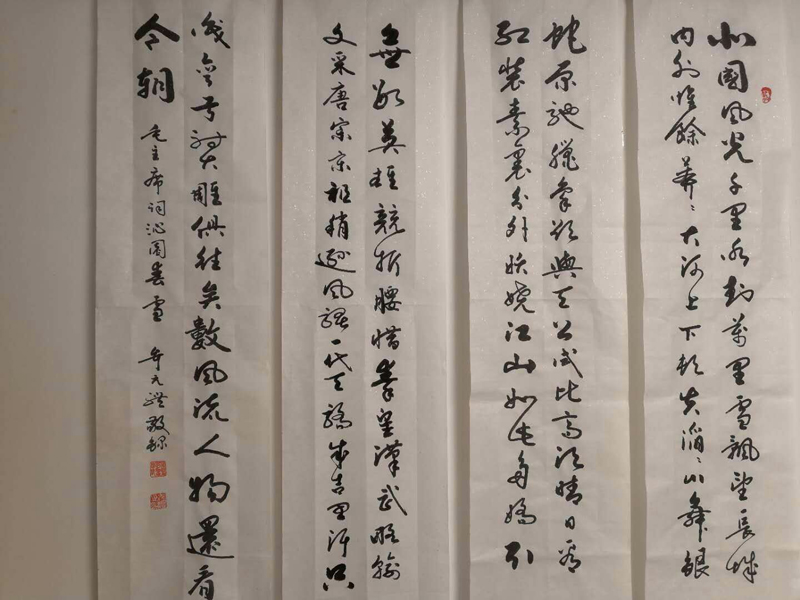 北國風光千里冰封萬里雪飄望長城
内外惟餘莽〻大河上下頓失滔〻山舞銀
蛇原馳臘象欲與天公試比高須晴日看
红装素裹分外妖嬈江山如此多嬌引
無數英雄競折腰惜秦皇漢武略輸
文采唐宗宋祖稍遜風騷一代天驕成吉思汗只
識彎弓射大雕俱往矣數風流人物還看
今朝
毛主席词沁園春雪 敬録